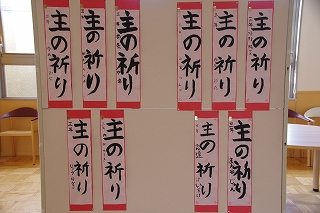 主の祈り
主の祈り
主の祈り
主の祈り
主の祈り
主の祈り
主の祈り
主の祈り
主の祈り
主の祈り